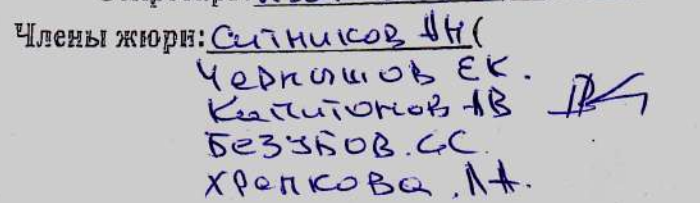 Члены жюри: Ситников АН(
Чернышов ЕК.
Капитонов АВ
БЕЗУБОВ.СС.
ХРАПКОВА.ЛА.